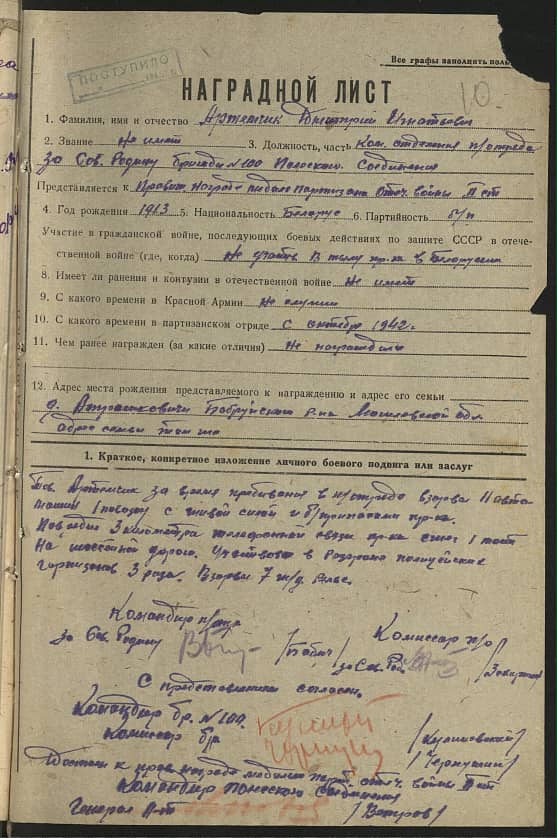 Все графы заполнять
ПОСТУПИЛО
10.
НАГРАДНОЙ ЛИСТ
1. Фамилия, имя и отчество Артемчик Дмитрий Игнатьевич
2. Звание Не имеет 3. Должность, часть Ком. отделения п/отряда
За Сов. Родину бригады №100 Полеского Соединения
Представляется к Правит. Награде медаль Партизана Отеч. войны II ст
4. Год рождения 1913 5. Национальность Беларус 6. Партийность б/п
Участие в гражданской войне, последующих боевых действиях по защите СССР в отече-
ственной войне (где, когда) Не участв. В тылу пр-ка в Белоруссии
8. Имеет ли ранения и контузии в отечественной войне Не имеет
9. С какого времени в Красной Армии Не служил
10. С какого времени в партизанском отряде С октября 1942.
11. Чем ранее награжден (за какие отличия) Не награждался
12. Адрес места рождения представляемого к награждению и адрес его семьи
Бобруйского р-на Могилевской обл.
Адрес семьи там же
1. Краткое, конкретное изложение личного боевого подвига или заслуг
Тов. Артемчик за время пребывания в п/отряде взорвал 11 авто
машин 1 повозку с живой силой и б/припасами пр-ка.
Порвал 3 километра телефонной связи пр-ка сжег 1 мост
На шоссейной дороге. Участвовал в разгроме полицейских
гарнизонов 3 раза. Взорвал 7 ж/д рельс.
Командир п/отр
за Сов. Родину /Бабич/
Комиссар п/о
за Сов. Род.
С представлением согласен.
Командир бр. №100
Комиссар бр
Достоин к прав. награде медалью парт. отеч. войны II ст
Командир Полеского Соединения
Генерал М-р /Ветров/